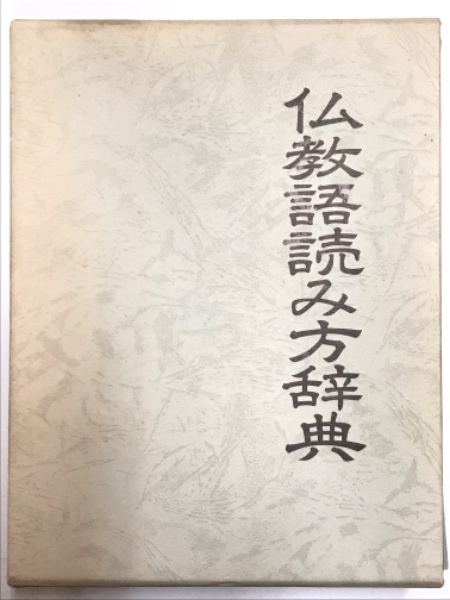 仏教語読み方辞典